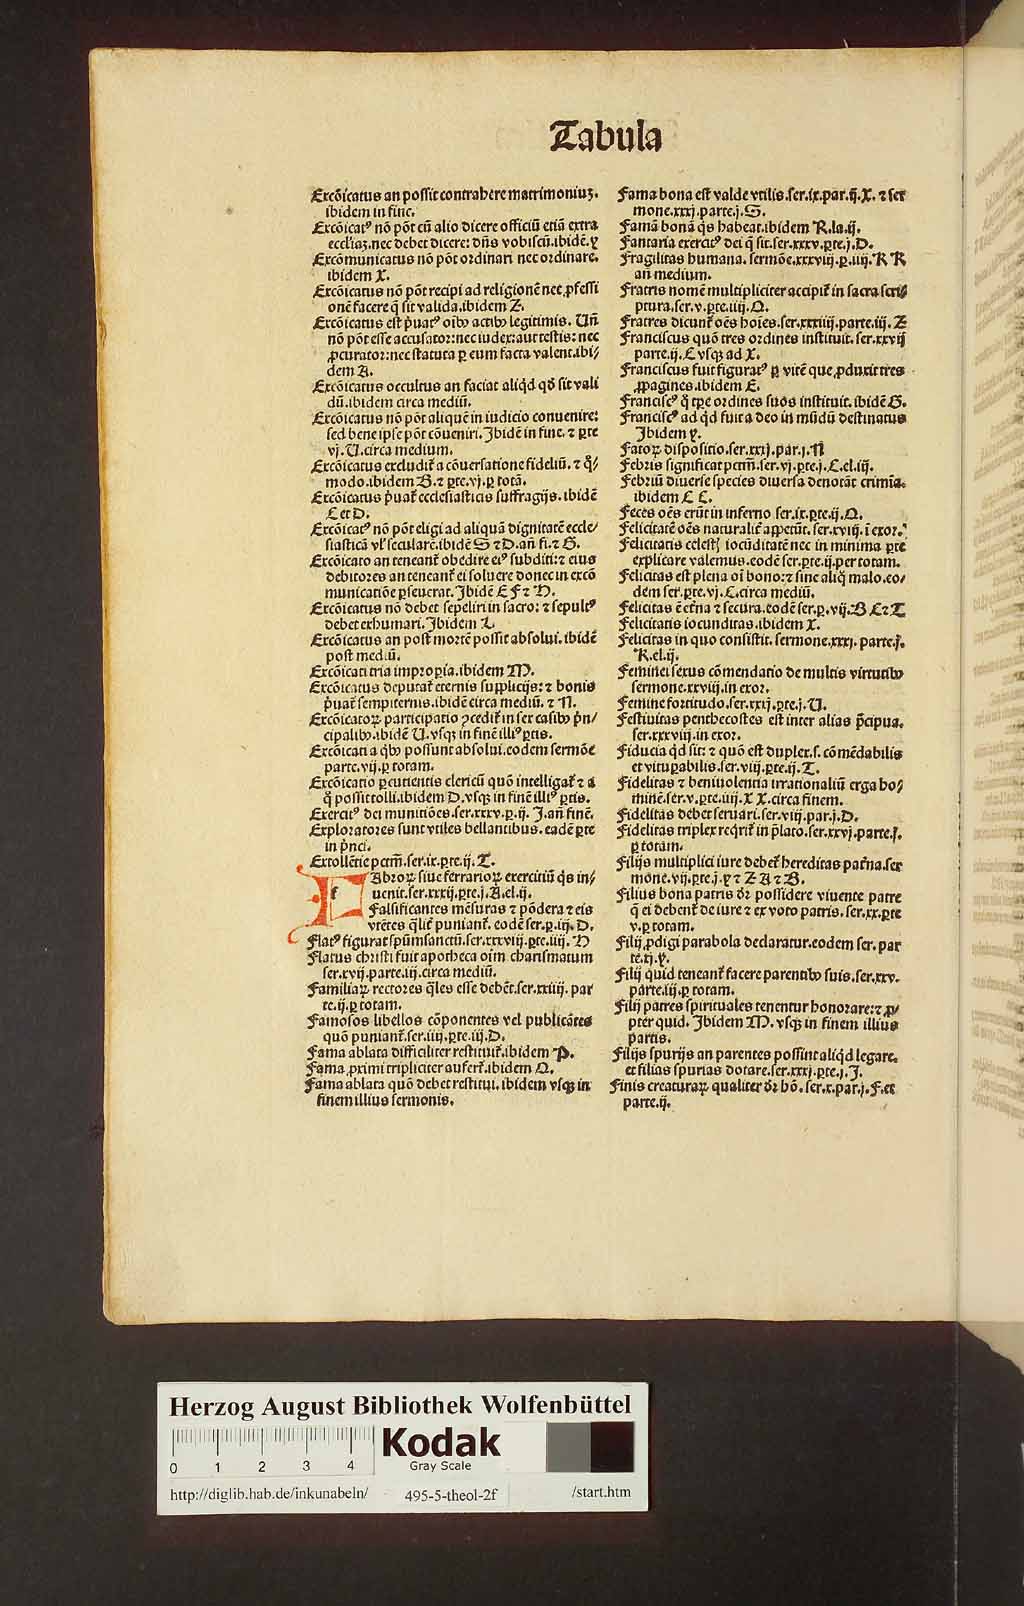 Tabula
Excōicatus an possit contrahere matrimoniuꝫ.
ibidem in fine.
Excōicatꝰ nō pōt cū alio dicere officiū etiā extra
eccl'iaꝫ. nec debet dicere: dn̄s vobiscū. ibidē. y
Excōmunicatus nō pōt ordinari nec ordinare.
ibidem X.
Excōicatus nō pōt recipi ad religionē nec ꝓfessi
onē facere q̄ sit valida. ibidem Z.
Excōicatus est p̄uatꝰ oībꝰ actibꝰ legitimis. Un̄
nō pōt esse accusator: nec iudex: aut testis: nec
ꝓcurator: nec statuta ꝑ eum facta valent. ibi/
dem A.
Excōicatus occultus an faciat aliq̇d qd̓ sit vali
dū. ibidem circa mediū.
Excōicatus nō pōt aliquē in iudicio conuenire:
sed bene ipse pōt cōueniri. Ibidē in fine. ⁊ ꝑte
vj. U. circa medium.
Excōicatus excludit̉ a cōuersatione fideliū. ⁊ q̊/
modo. ibidem B. ⁊ ꝑte. vj. ꝑ totā.
Excōicatus p̄uat̉ ecclesiasticis suffragijs. ibidē
C et D.
Excōicatꝰ nō pōt eligi ad aliquā dignitatē eccle/
siasticā vl̓ secularē. ibidē S ⁊ D. an̄ fi. ⁊ G.
Excōicato an teneant̉ obedire eiꝰ subditi: ⁊ eius
debitores an teneant̉ ei soluere donec in excō
municatiōe ꝑseuerat. Ibidē E F ⁊ H.
Excōicatus nō debet sepeliri in sacro: ⁊ sepultꝰ
debet exhumari. Ibidem L.
Excōicatus an post mortē possit absolui. ibidē
post mediū.
Excōicati tria impropria. ibidem M.
Excōicatus deputat̉ eternis supplicijs: ⁊ bonis
p̄uat̉ sempiternis. ibidē circa mediū. ⁊ N.
Excōicatoꝝ participatio ꝯcedit̉ in sex casibꝰ p̄n/
cipalibꝰ. ibidē U. vsqꝫ in finē illiꝰ ꝑtis.
Excōicati a q̇bꝰ possunt absolui. eodem sermōe
parte. vij. ꝑ totam.
Excōicatio ꝑcutientis clericū quō intelligat̉ ⁊ a
q̊ possit tolli. ibidem D. vsqꝫ in finē illiꝰ ꝑtis.
Exercitꝰ dei munitiōes. ser. xxxv. ꝑ. ij. I. an̄ finē.
Exploratores sunt vtiles bellantibus. eadē ꝑte
in p̄nci.
Extollētie pctm̄. ser. ix. ꝑte. ij. T.
f
Abroꝝ siue ferrarioꝝ exercitiū q̇s in/
uenit. ser. xxxij. ꝑte. j. A. el. ij.
Falsificantes mēsuras ⁊ pōdera ⁊ eis
vtētes q̄lit̉ puniant̉. eodē ser. ꝑ. iij. D.
Flatꝰ figurat spūmsanctū. ser. xxxviij. ꝑte. iiij. H
Flatus christi fuit apotheca oīm charismatum
ser. xvij. parte. iij. circa mediū.
Familiaꝝ rectores q̄les esse debēt. ser. xxiiij. par
te. ij. ꝑ totam.
Famosos libellos cōponentes vel publicātes
quō puniant̉. ser. iiij. ꝑte. iij. D.
Fama ablata difficiliter restituit̉. ibidem P.
Fama ꝓximi tripliciter aufert̉. ibidem O.
Fama ablata quō debet restitui. ibidem vsqꝫ in
finem illius sermonis.
Fama bona est valde vtilis. ser. ix. par. ij. X. ⁊ ser
mone. xxxj. parte. j. S.
Famā bonā q̇s habeat. ibidem R. la. ij.
Fantaria exercitꝰ dei q̄ sit. ser. xxxv. ꝑte. j. D.
Fragilitas humana. sermōe. xxxviij. ꝑ. iiij. K K
an̄ medium.
Fratris nomē multipliciter accipit̉ in sacra scri/
ptura. ser. v. ꝑte. iiij. O.
Fratres dicunt̉ oēs hoīes. ser. xxxiiij. parte. iij. Z
Franciscus quō tres ordines instituit. ser. xxvij
parte. ij. C vsqꝫ ad X.
Franciscus fuit figuratꝰ ꝑ vitē que ꝓduxit tres
ꝓpagines. ibidem E.
Franciscꝰ q̊ tꝑe ordines suos instituit. ibidē G.
Franciscꝰ ad q̇d fuit a deo in mūdū destinatus
Ibidem y.
Fatoꝝ dispositio. ser. xxij. par. j. N
Febris significat pctm̄. ser. vj. ꝑte. j. C. el. iij.
Febriū diuerse species diuersa denotāt crimīa.
ibidem C C.
Feces oēs erūt in inferno ser. ix. ꝑte. ij. O.
Felicitatē oēs naturalit̉ appetūt. ser. xviij. ī exor.
Felicitatis celestꝭ iocūditatē nec in minima ꝑte
explicare valemus. eodē ser. ꝑte. ij. per totam.
Felicitas est plena oī bono: ⁊ sine aliq̊ malo. eo/
dem ser. ꝑte. vj. C. circa mediū.
Felicitas ē et̉na ⁊ secura. eodē ser. ꝑ. vij. B C ⁊ T
Felicitatis iocunditas. ibidem X.
Felicitas in quo consistit. sermone. xxxj. parte. j.
R. el. ij.
Feminei sexus cōmendatio de multis virtutibꝰ
sermone. xxviij. in exor.
Femine fortitudo. ser. xxij. ꝑte. j. U.
Festiuitas penthecostes est inter alias p̄cipua.
ser. xxxviij. in exor.
Fiducia q̇d sit: ⁊ quō est duplex. s. cōmēdabilis
et vituꝑabilis. ser. viij. ꝑte. ij. T.
Fidelitas ⁊ beniuolentia irrationaliū erga ho/
minē. ser. v. ꝑte. iiij. X X. circa finem.
Fidelitas debet seruari. ser. viij. par. j. D.
Fidelitas triplex req̇rit̉ in p̄lato. ser. xxvj. parte. j.
ꝑ totam.
Filijs multiplici iure debet̉ hereditas pat̉na. ser
mone. vij. ꝑte. j. y ⁊ Z A ⁊ B.
Filius bona patris dꝛ possidere viuente patre
q̄ ei debent̉ de iure ⁊ ex voto patris. ser. xx. ꝑte
v. ꝑ totam.
Filij ꝓdigi parabola declaratur. eodem ser. par
te. xj. y.
Filij quid teneant̉ facere parentibꝰ suis. ser. xxv.
parte. iij. ꝑ totam.
Filij patres spirituales tenentur honorare: ⁊ ꝓ/
pter quid. Ibidem M. vsqꝫ in finem illius
partis.
Filijs spurijs an parentes possint aliq̇d legare.
et filias spurias dotare. ser. xxxj. ꝑte. j. I.
Finis creaturaꝝ qualiter dꝛ bō. ser. x. par. j. F. et
parte. ij.
Herzog August Bibliothek Wolfenbüttel
0 1 2 3 4
Kodak
Gray Scale
http://diglib.hab.de/inkunabeln/ 495-5-theol-2f /start.htm